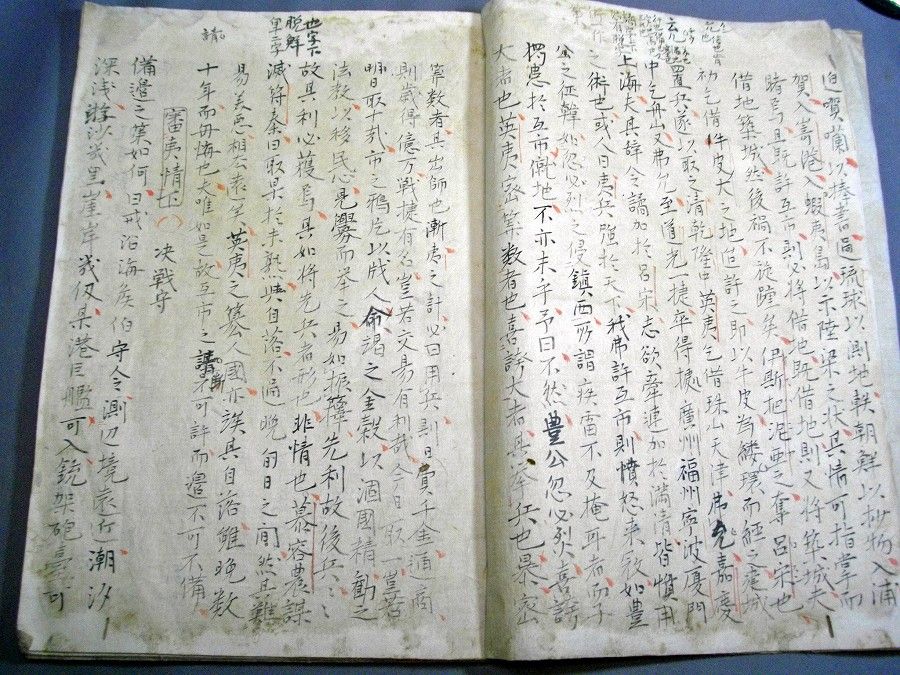 以捧書過琉球以測地朝鮮以抄物入浦
賀入壽港入蝦夷島以示陸梁之状其情可指掌而
睹焉且既許互市則必将借地既借地則又将築城夫
借地築城然後禍不旋踵矣伊斯把泥亜之奪呂宋也
初乞借牛皮大之地借許之即以牛皮為縷環而経之遂城
置兵遂以取之清乾隆中英夷乞借珠山天津弗允嘉慶
中乞舟山又弗允至道光一捷卒得擾廣州福州寧波厦門
上海夫其辞令譎加於呂宋志欲牽連加於満清皆慣用
之術也或人曰夷兵雖於天下我弗許互市則憤怒来敵如豊
公之征韓如忽必烈之侵鎮西所謂疾雷不及掩耳者而子
愕患於互市僦地不亦未乎予曰不然豊公忽必烈喜誇
大者也英夷密算数者也喜誇大者其挙兵也暴密
算数者其出師也漸夷之計必曰用兵則日費千金通商
則歳得億万戦捷有名豈若交易有利哉今日取一掌者
明日取十哉市之鴉片以戕人命謁之金穀以涸國精動之
法教以移民見釁而挙之易如振籜先利故後兵
故其利必獲焉其如将先兵者形也非情也慕容農謀
滅符秦曰取果於未熟與自落不過晩旬日之間然其難
易美悪相去遠矣英夷之簒人國亦俟其自落雖晩数
十年而毋悔也夫唯如是故互市之請不可許而邊不可不備
審夷情下 決戦守
備邊之策如何曰戒沿海侯伯守令測辺境遠近潮汐
深浅游沙幾里崖岸幾仭某港巨艦可入銃架砲臺可